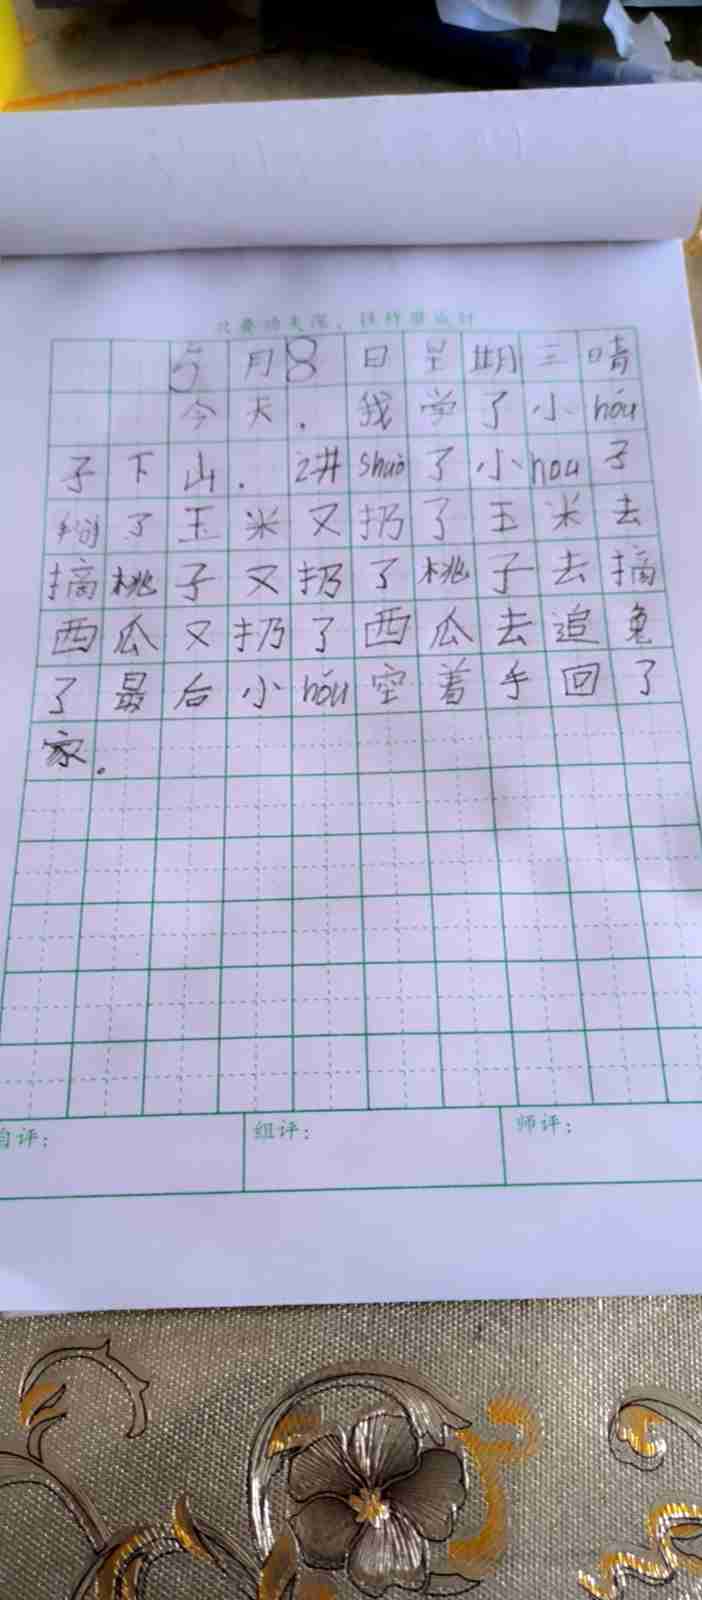 只要功夫深，铁杵磨成针
5月8日星期三晴
今天.我学了小hóu
子下山.讲shuò了小hou子
了玉米又扔了玉米去
摘桃子又扔了桃子去摘
西瓜又扔了西瓜去追兔
了最后小hóu空着手回了
家.
自评：
组评：
师评：